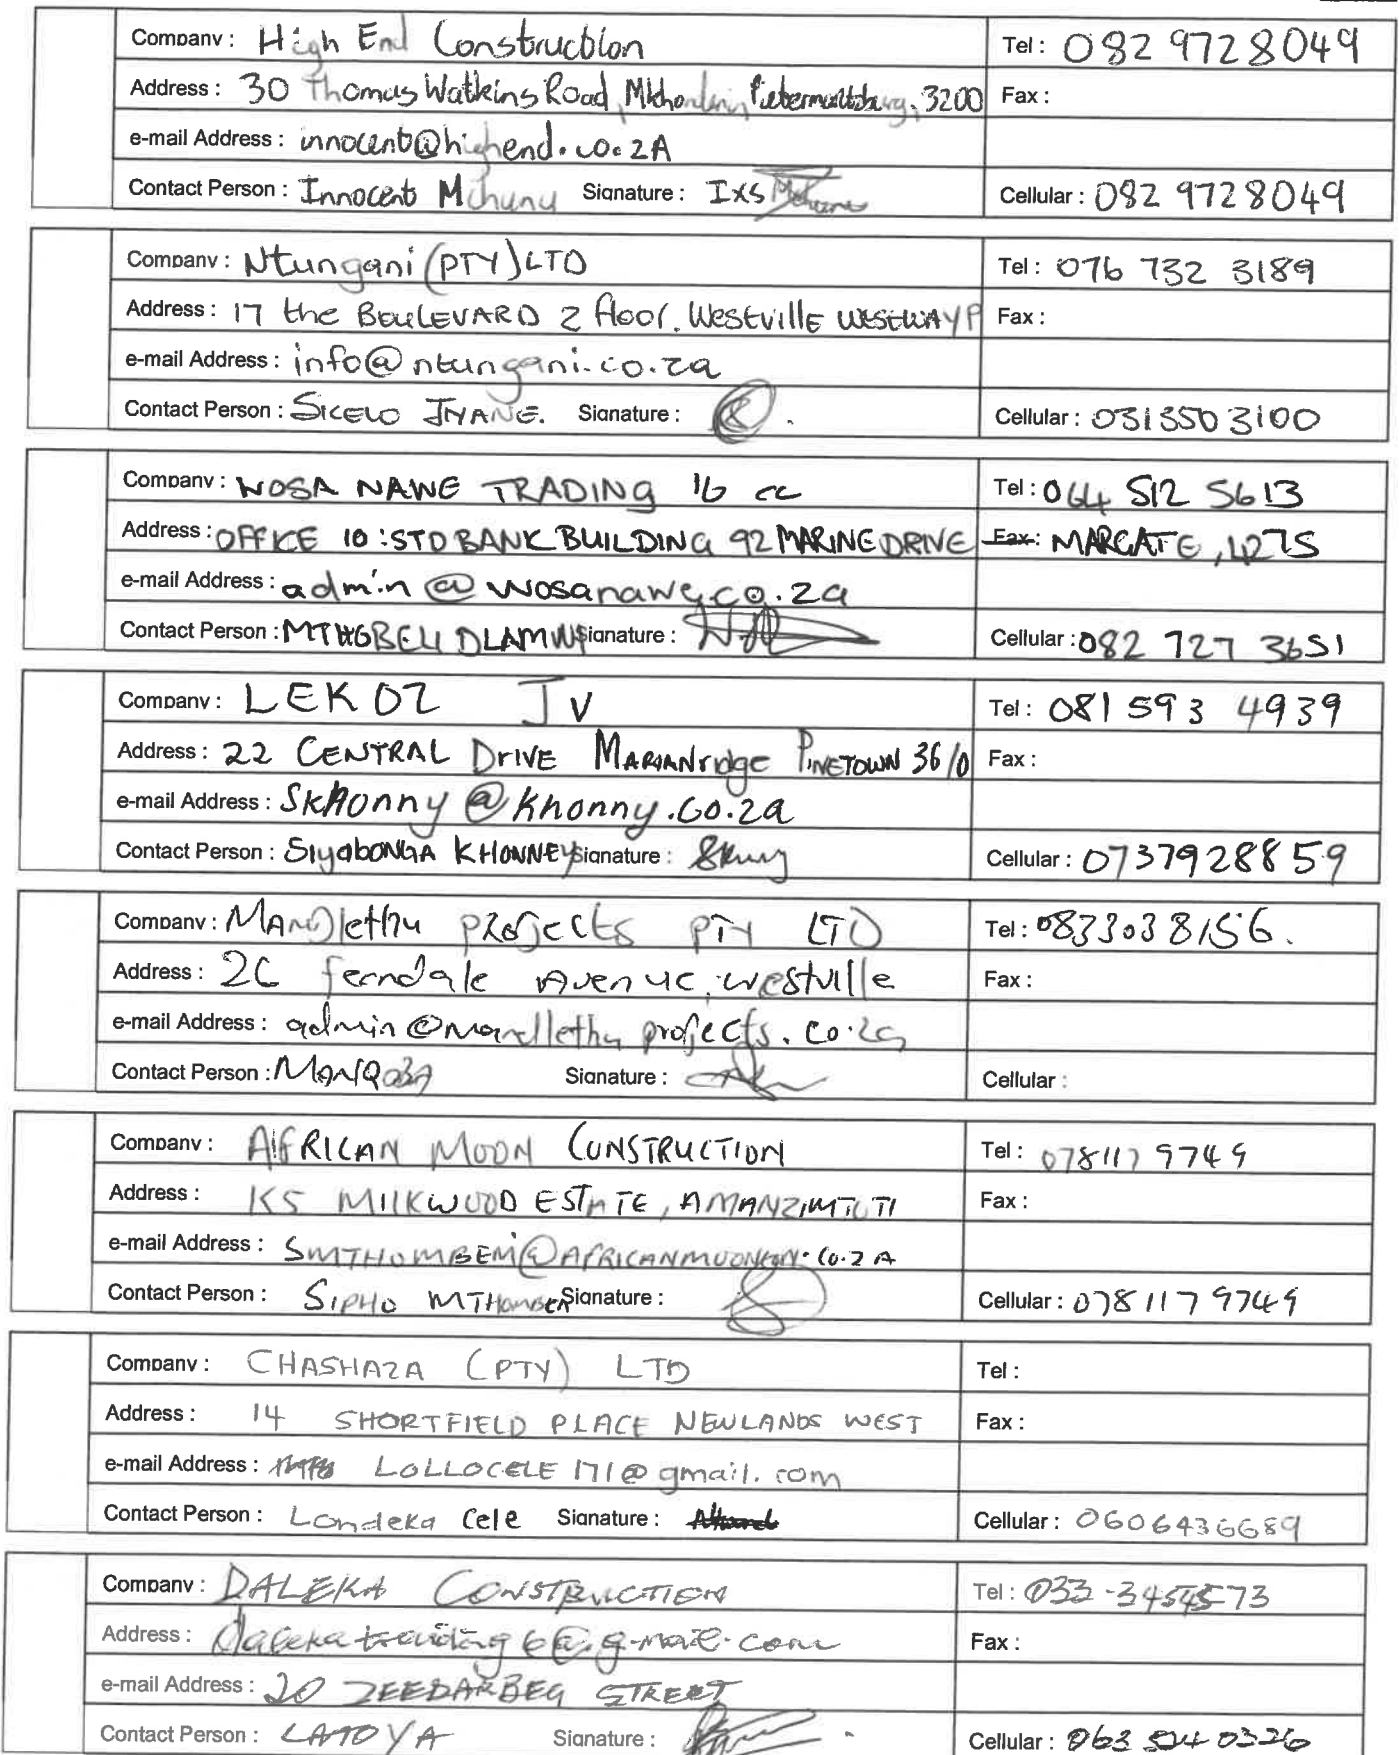 Company : High End Construction Tel : 082 9728049
Address : 30 Thomas Watkins Road, Pietermaritzburg, 3200 Fax :
e-mail Address : innocent@highend.co.zA
Contact Person : Innocent Mchunu Signature : Cellular : 082 9728049
Company : Ntungani (PTY) LTD Tel : 076 732 3189
Address : 17 the BOULEVARD 2 floor. Westville WESTWAY P Fax :
e-mail Address : info@ntungani.co.za
Contact Person : SICELO JIYANE. Signature : Cellular : 0313503100
Company : WOSA NAWE TRADING 16 cc Tel : 064 512 5613
Address : OFFICE 10 : STD BANK BUILDING 92 MARINE DRIVE Fax : MARGATE, 4275
e-mail Address : admin@wosanawe.co.za
Contact Person : DLAMINI Signature : Cellular : 082 727 3651
Company : LEKOZ JV Tel : 081 593 4939
Address : 22 CENTRAL DRIVE MARIANridge PINETOWN 3610 Fax :
e-mail Address : Skhonny@khonny.co.za
Contact Person : SiyabONGA KHONNEY Signature : Cellular : 0737928859
Company : Mandlethu projects PTY LTD Tel : 0833038156.
Address : 26 ferndale Avenue, westville Fax :
e-mail Address : admin@mandlethuprojects.co.za
Contact Person : MANQOBA Signature : Cellular :
Company : AFRICAN MOON CONSTRUCTION Tel : 078117 9749
Address : K5 MILKWOOD ESTATE, AMANZIMTOTI Fax :
e-mail Address : SMTHOMBENI@AFRICANMOONCON.CO.ZA
Contact Person : SIPHO MTHOMBENI Signature : Cellular : 078 117 9749
Company : CHASHAZA (PTY) LTD Tel :
Address : 14 SHORTFIELD PLACE NEWLANDS WEST Fax :
e-mail Address : LOLLOCELE171@gmail.com
Contact Person : Londeka Cele Signature : Cellular : 0606436689
Company : DALEKA CONSTRUCTION Tel : 033-3454573
Address : dalekatrading6@g-mail.com Fax :
e-mail Address : 20 ZEEDARBEG STREET
Contact Person : LATOYA Signature : Cellular : 063 504 0326